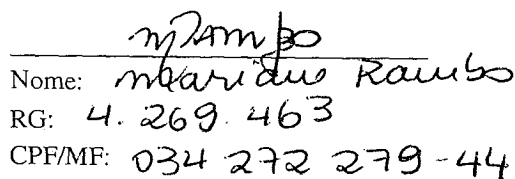 mRambo
Nome: Mariane Rambo
RG: 4.269.463
CPF/MF: 034 272 279-44